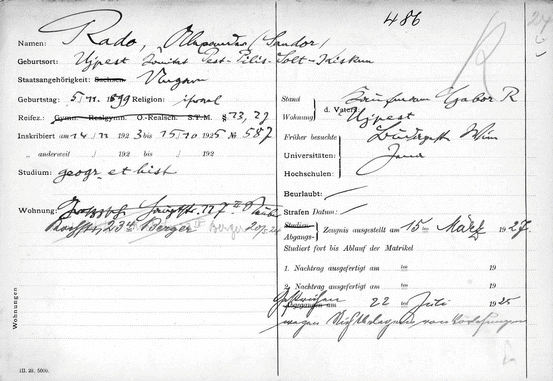 486
Namen: Rado, Alexander (Sandor)
Geburtsort: Ujpest Komitat Pest-Pilis-Solt-Kiskun
Staatsangehörigkeit: Sachsen Ungarn
Geburtstag: 5/11. 1899 Religion: israel
Reifez.: Gymn. Realgymn. O.-Realsch. S.T.M. § 23, 27
Inskribiert am 14/11 1923 bis 15/10 1925 № 557
„ anderweit / 192 „ / 192
Studium: geogr et hist
Wohnung: 127
23 Berger
Wohnungen
III. 23. 5000.
Stand
Wohnung
d. Vaters:
Kaufmann Gabor R
Ujpest
Früher besuchte
Universitäten:
Hochschulen:
Budapest Wien
Jena
Beurlaubt:
Strafen Datum:
Studien-
Abgangs-
Zeugnis ausgestellt am 15ten März 1927.
Studiert fort bis Ablauf der Matrikel
1. Nachtrag ausgefertigt am ten 19
2. Nachtrag ausgefertigt am ten 19
Gestrichen
am 22 ten Juli 1925
wegen Nichtbelegens von Vorlesungen